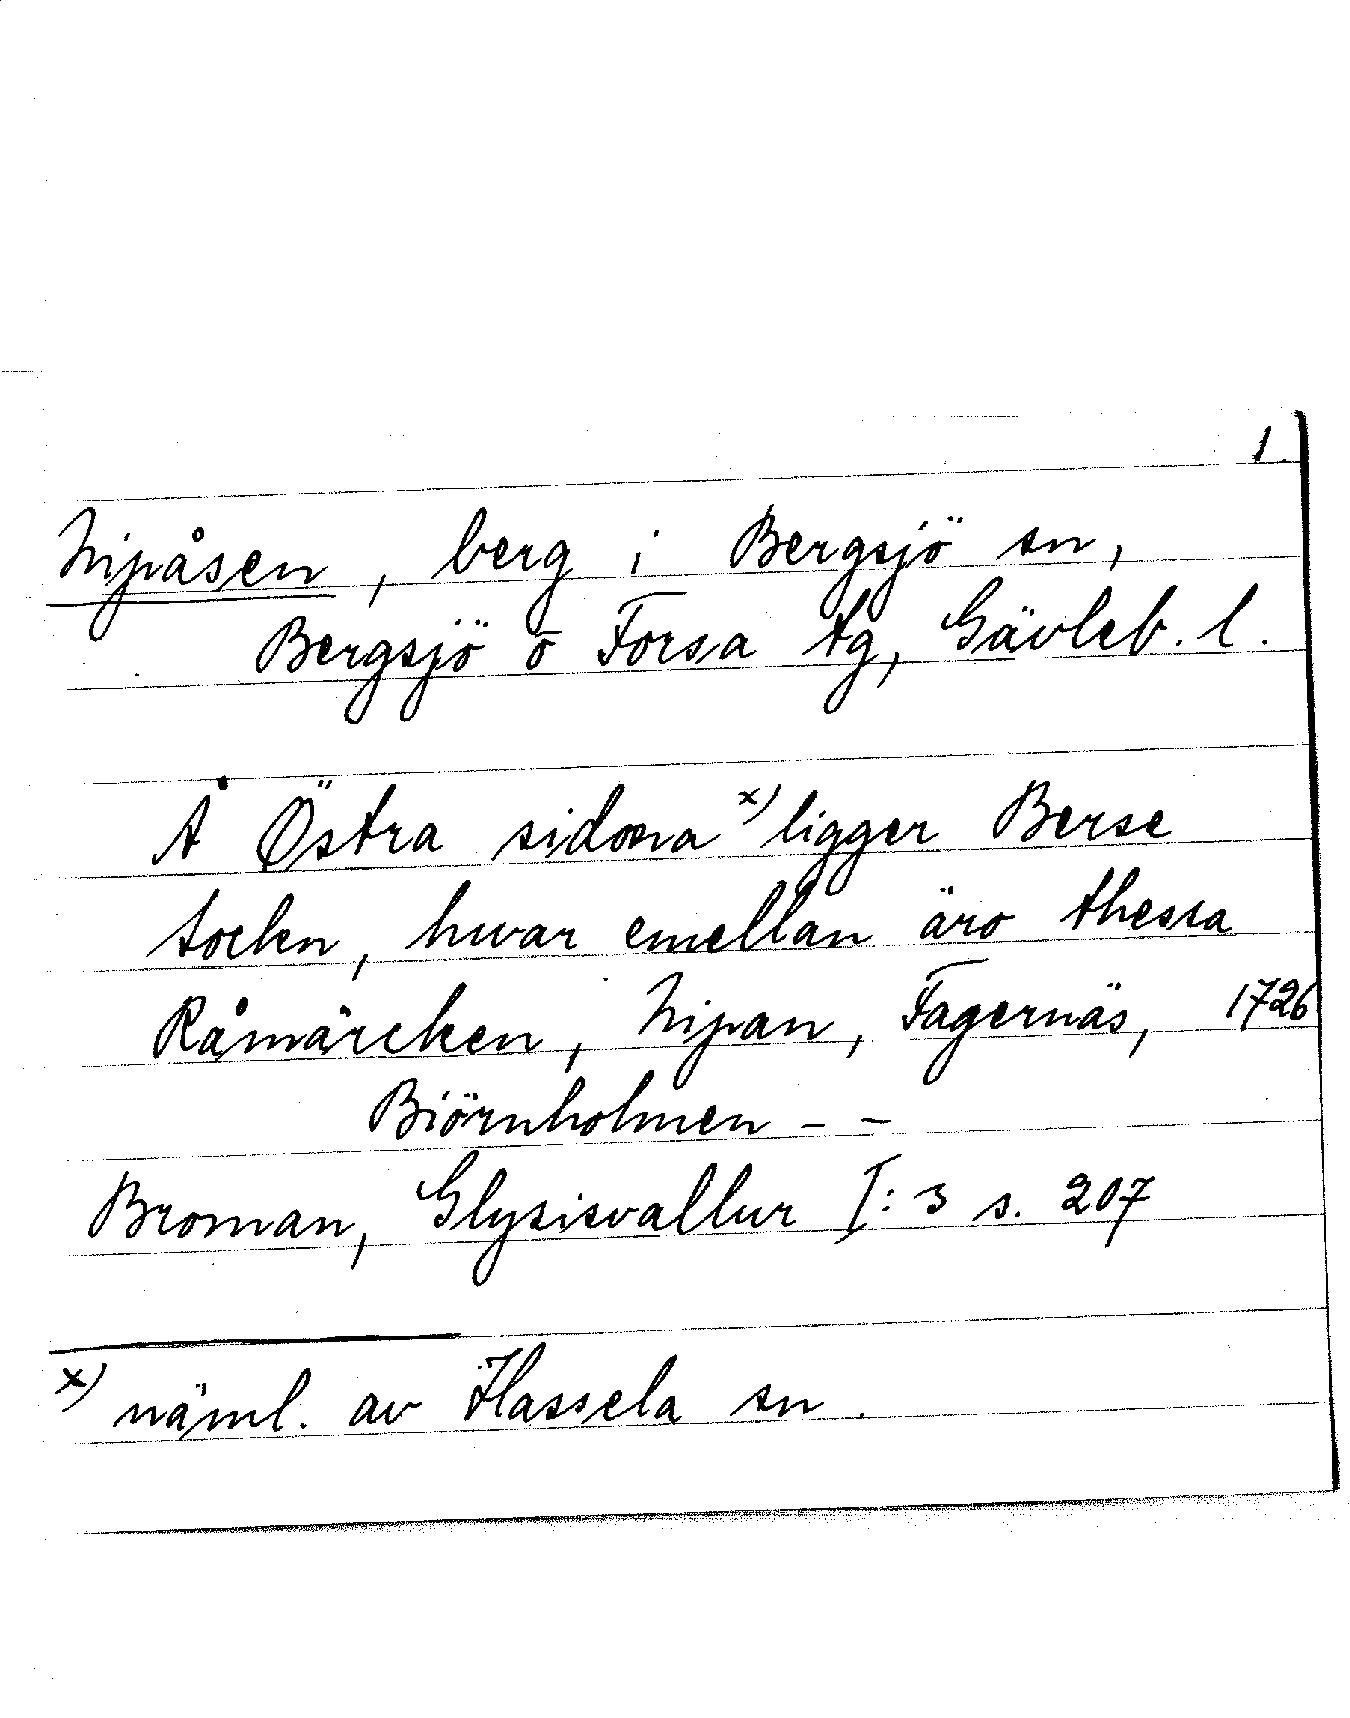 1
Nipåsen, berg i Bergsjö sn,
Bergsjö o Forsa tg, Gävleb. l.
Å Östra sidona x) ligger Berse
sockn, hwar emellan äro thessa
Råmärcken, Nipan, Fagernäs, 1726
Biörnholmen - -
Broman, Glysisvallur I: 3 s. 207
x) näml. av Hassela sn.